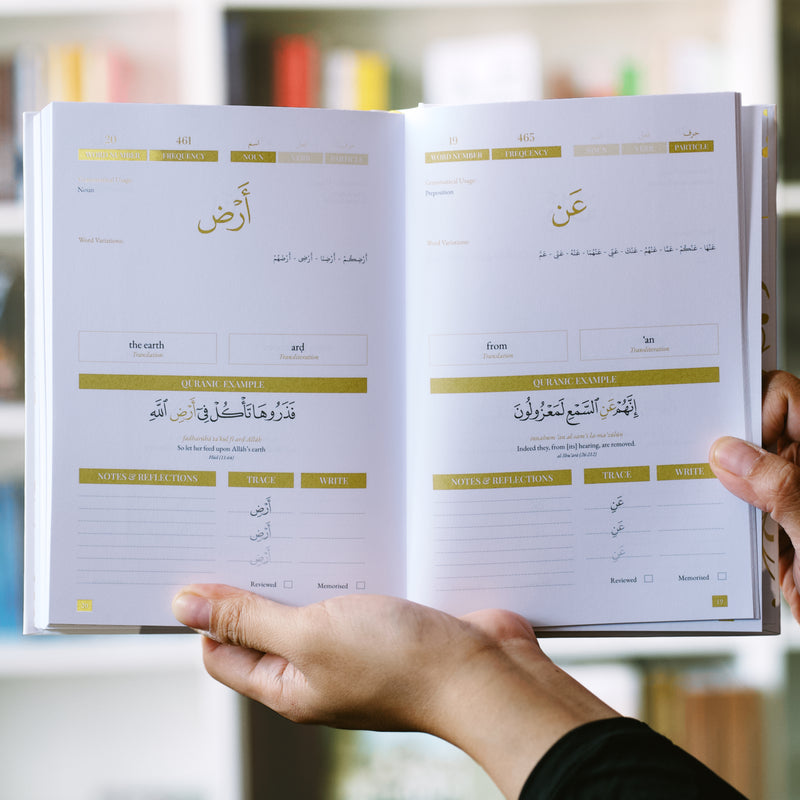 19 465 اسم فعل حرف
WORD NUMBER FREQUENCY NOUN VERB PARTICLE
Grammatical Usage:
Preposition
عَن
Word Variations:
عَنْهَا - عَنكُمْ - عَنَّا - عَنْهُمْ - عَنكَ - عَنِّي - عَنْهُمَا - عَنْهُ - عَنِّى - عَمَّ
from 'an
Translation Transliteration
QURANIC EXAMPLE
إِنَّهُمْ عَنِ ٱلسَّمْعِ لَمَعْزُولُونَ
innahum 'an al-sam'i la-ma'zūlūn
Indeed they, from [its] hearing, are removed.
al-Shu'arā [26:212]
NOTES & REFLECTIONS TRACE WRITE
عَنِ
عَنِ
عَنِ
Reviewed Memorised
19
20 461 اسم فعل حرف
WORD NUMBER FREQUENCY NOUN VERB PARTICLE
Grammatical Usage:
Noun
أَرْض
Word Variations:
أَرْضِكُمْ - أَرْضِنَا - أَرْضِى - أَرْضَهُمْ
the earth arḍ
Translation Transliteration
QURANIC EXAMPLE
فَذَرُوهَا تَأْكُلْ فِىٓ أَرْضِ ٱللَّهِ
fadharūhā ta'kul fī arḍ Allāh
So let her feed upon Allāh's earth
Hūd [11:64]
NOTES & REFLECTIONS TRACE WRITE
أَرْضِ
أَرْضِ
أَرْضِ
Reviewed Memorised
20